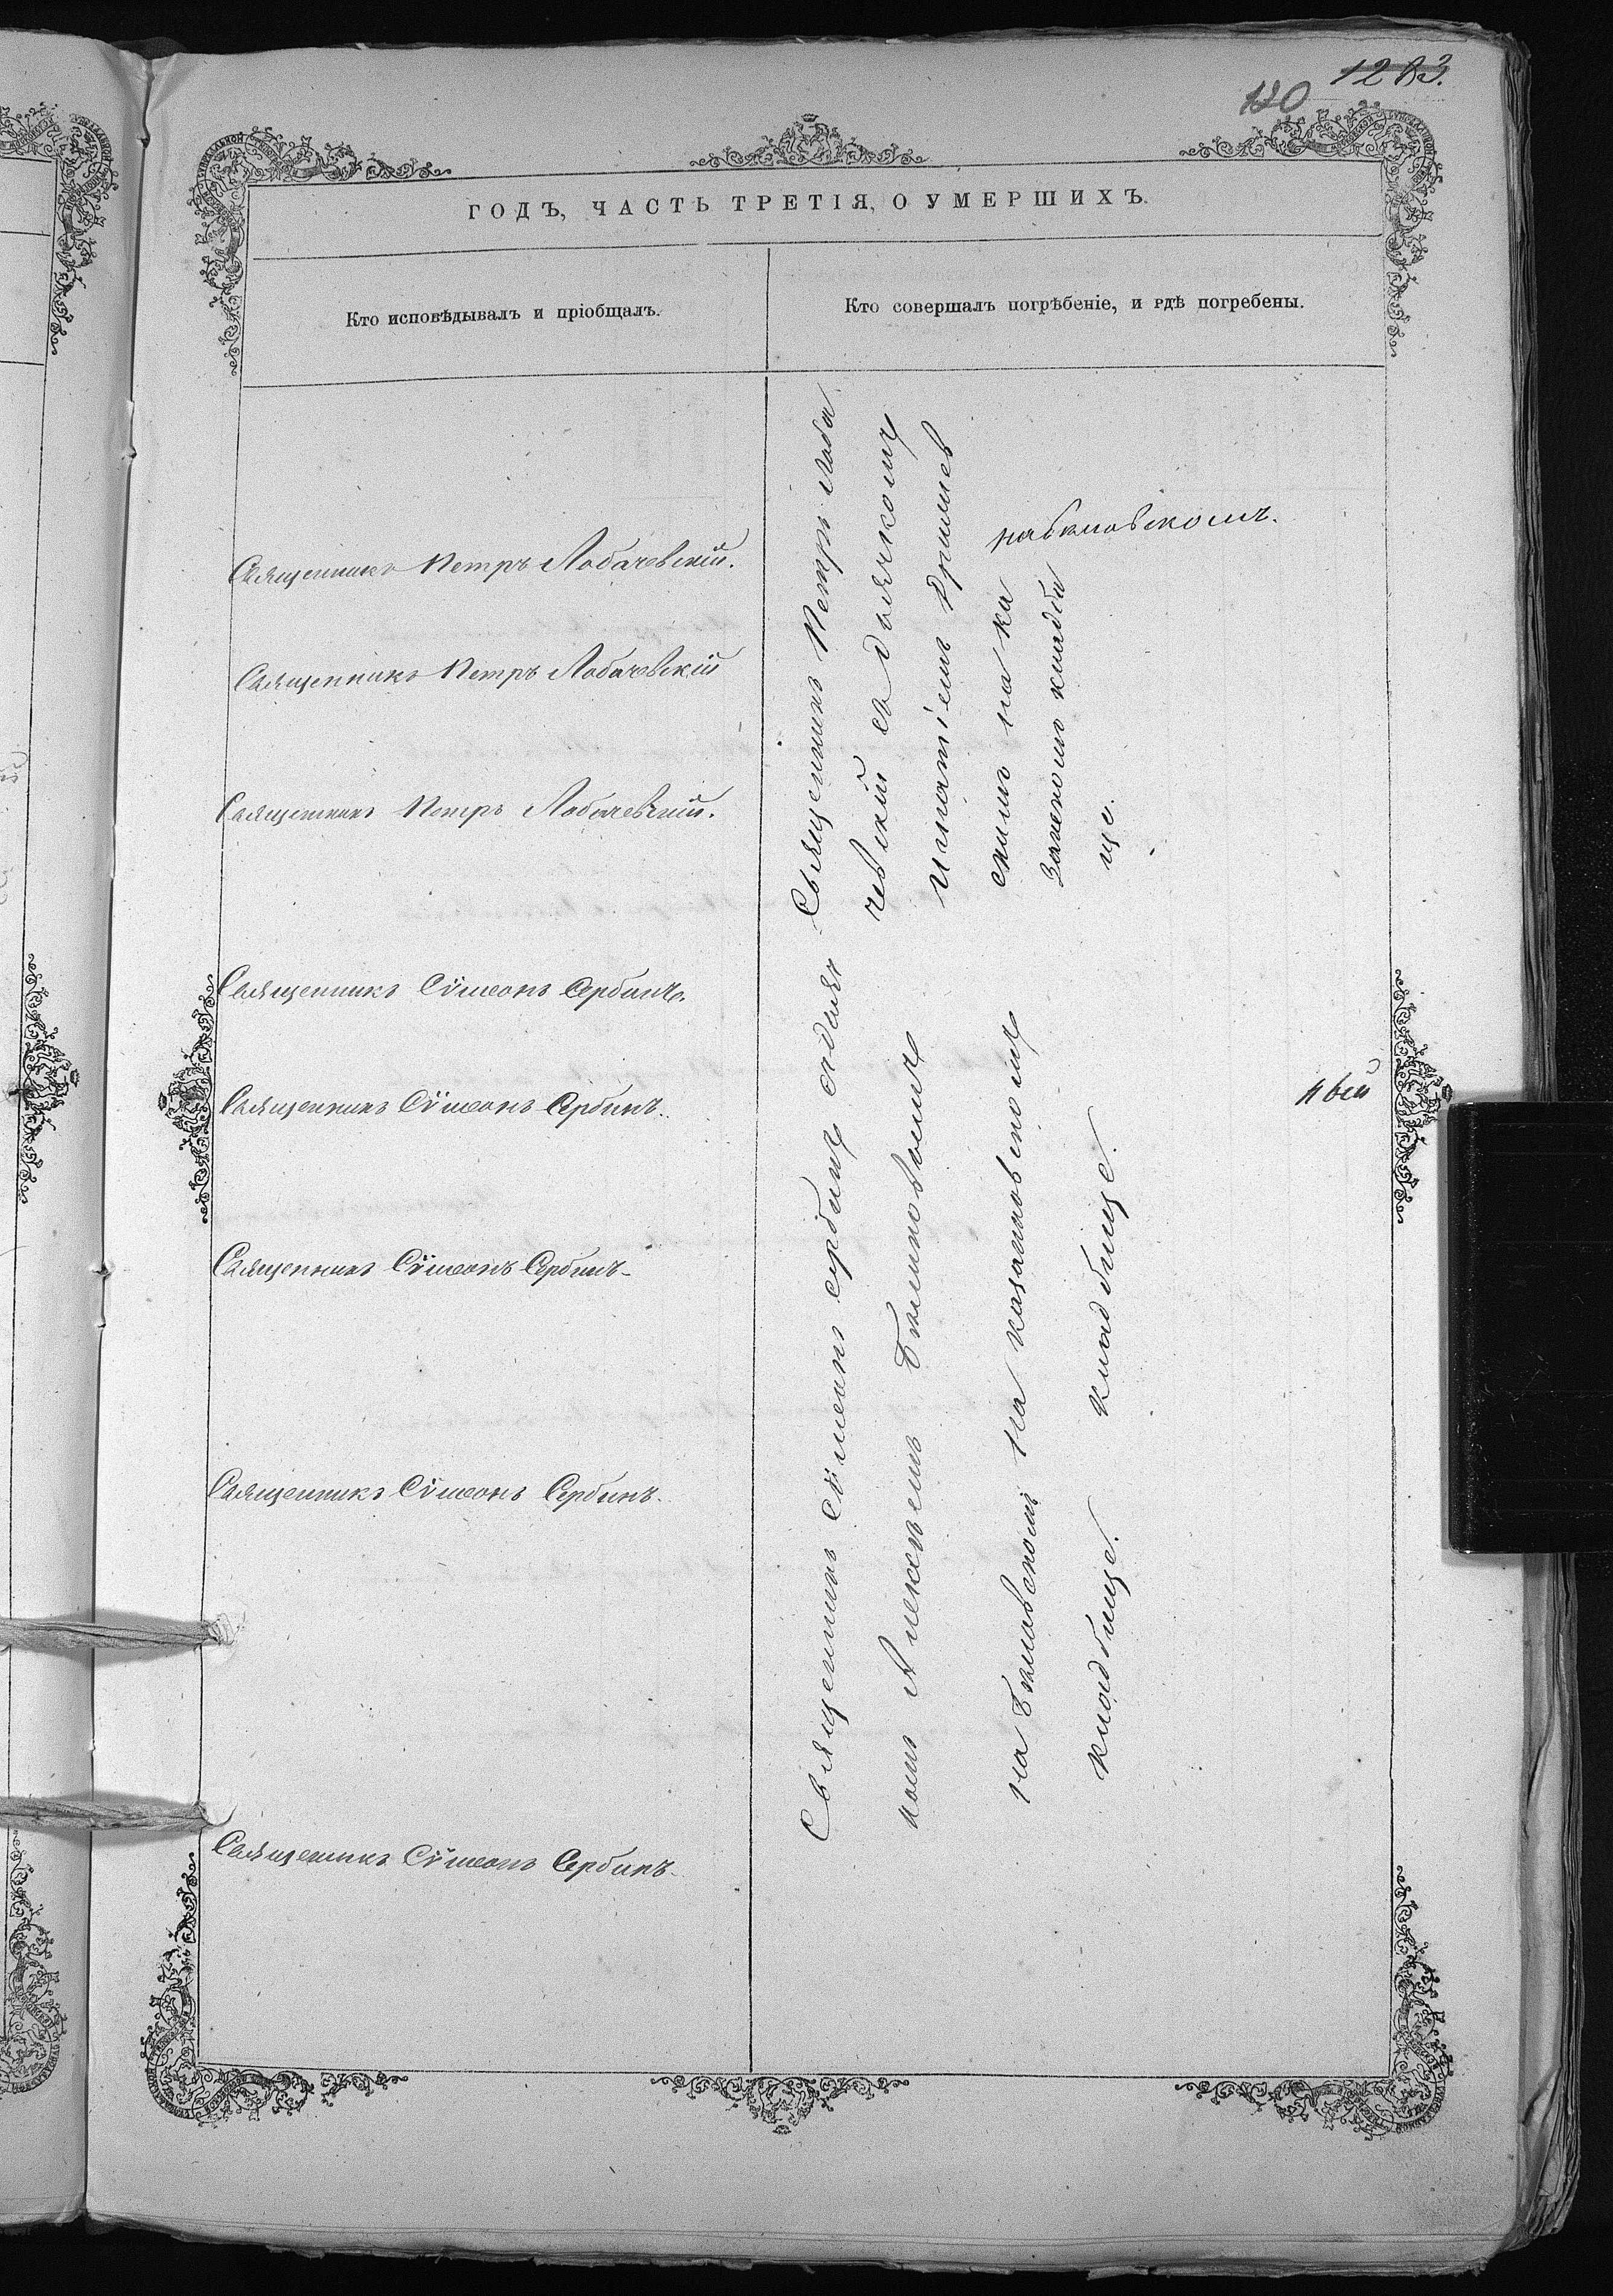 1283.
120
ГОДЪ, ЧАСТЬ ТРЕТІЯ, О УМЕРШИХЪ.
Кто исповѣдывалъ и пріобщалъ.
Кто совершалъ погрѣбеніе, и гдѣ погребены.
Священникъ Петръ Лобачевскій.
Священникъ Петръ Лобачевскій
Священникъ Петръ Лобачевскій.
Священникъ Сѵмеонъ Сербинъ.
Священникъ Сѵмеонъ Сербинъ.
Священникъ Сѵмеонъ Сербинъ
Священникъ Сѵмеонъ Сербинъ.
Священникъ Сѵмеонъ Сербинъ.
Священникъ Петръ Лоба
чевскій съ дьячкомъ
Игнатіемъ
скимъ на ка
кладби
ще.
Священникъ Сѵмеонъ Сербинъ съ дьяч
комъ Алексѣемъ
на кладбище.
на кладбище.